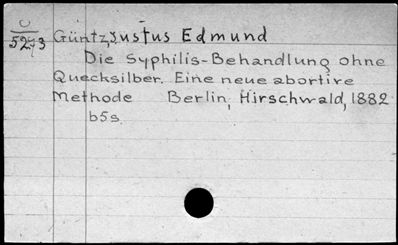 U
5273
Güntz, Justus Edmund
Die Syphilis-Behandlung ohne
Quecksilber. Eine neue abortive
Methode Berlin, Hirschwald, 1882
65s.